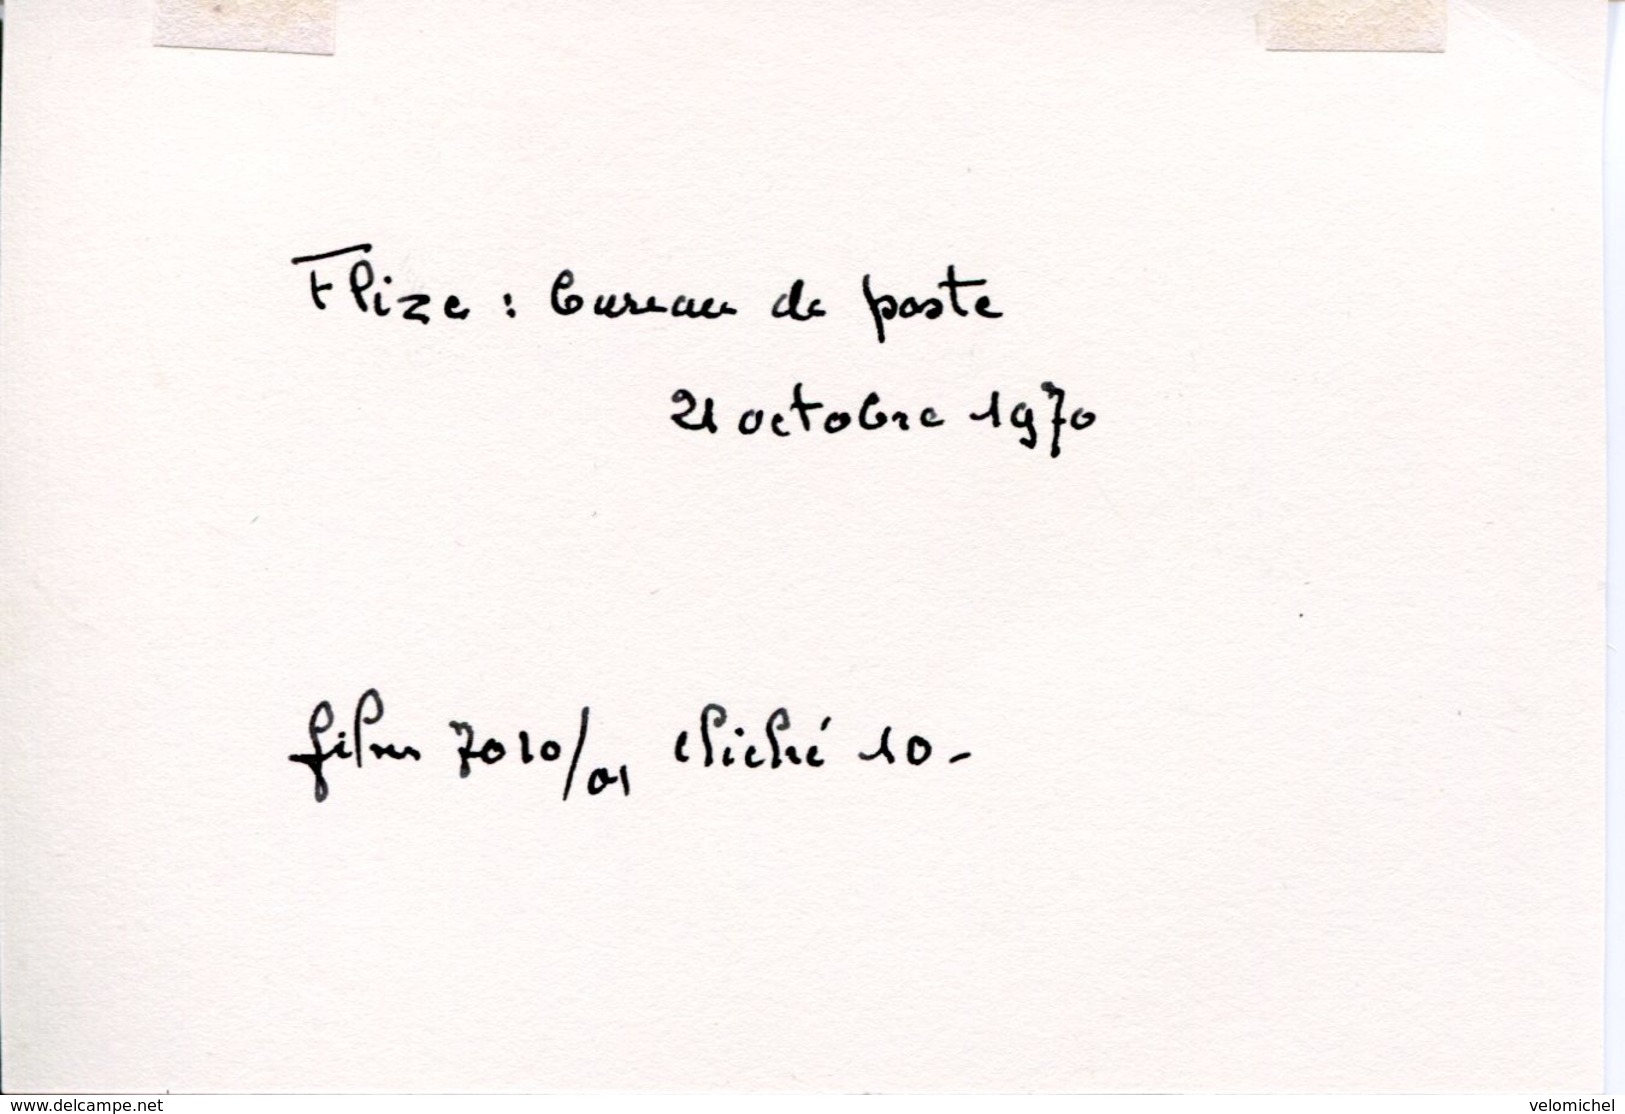 Flize : bureau de poste
21 octobre 1970
film 7010/01 cliché 10-
www.delcampe.net
velomichel